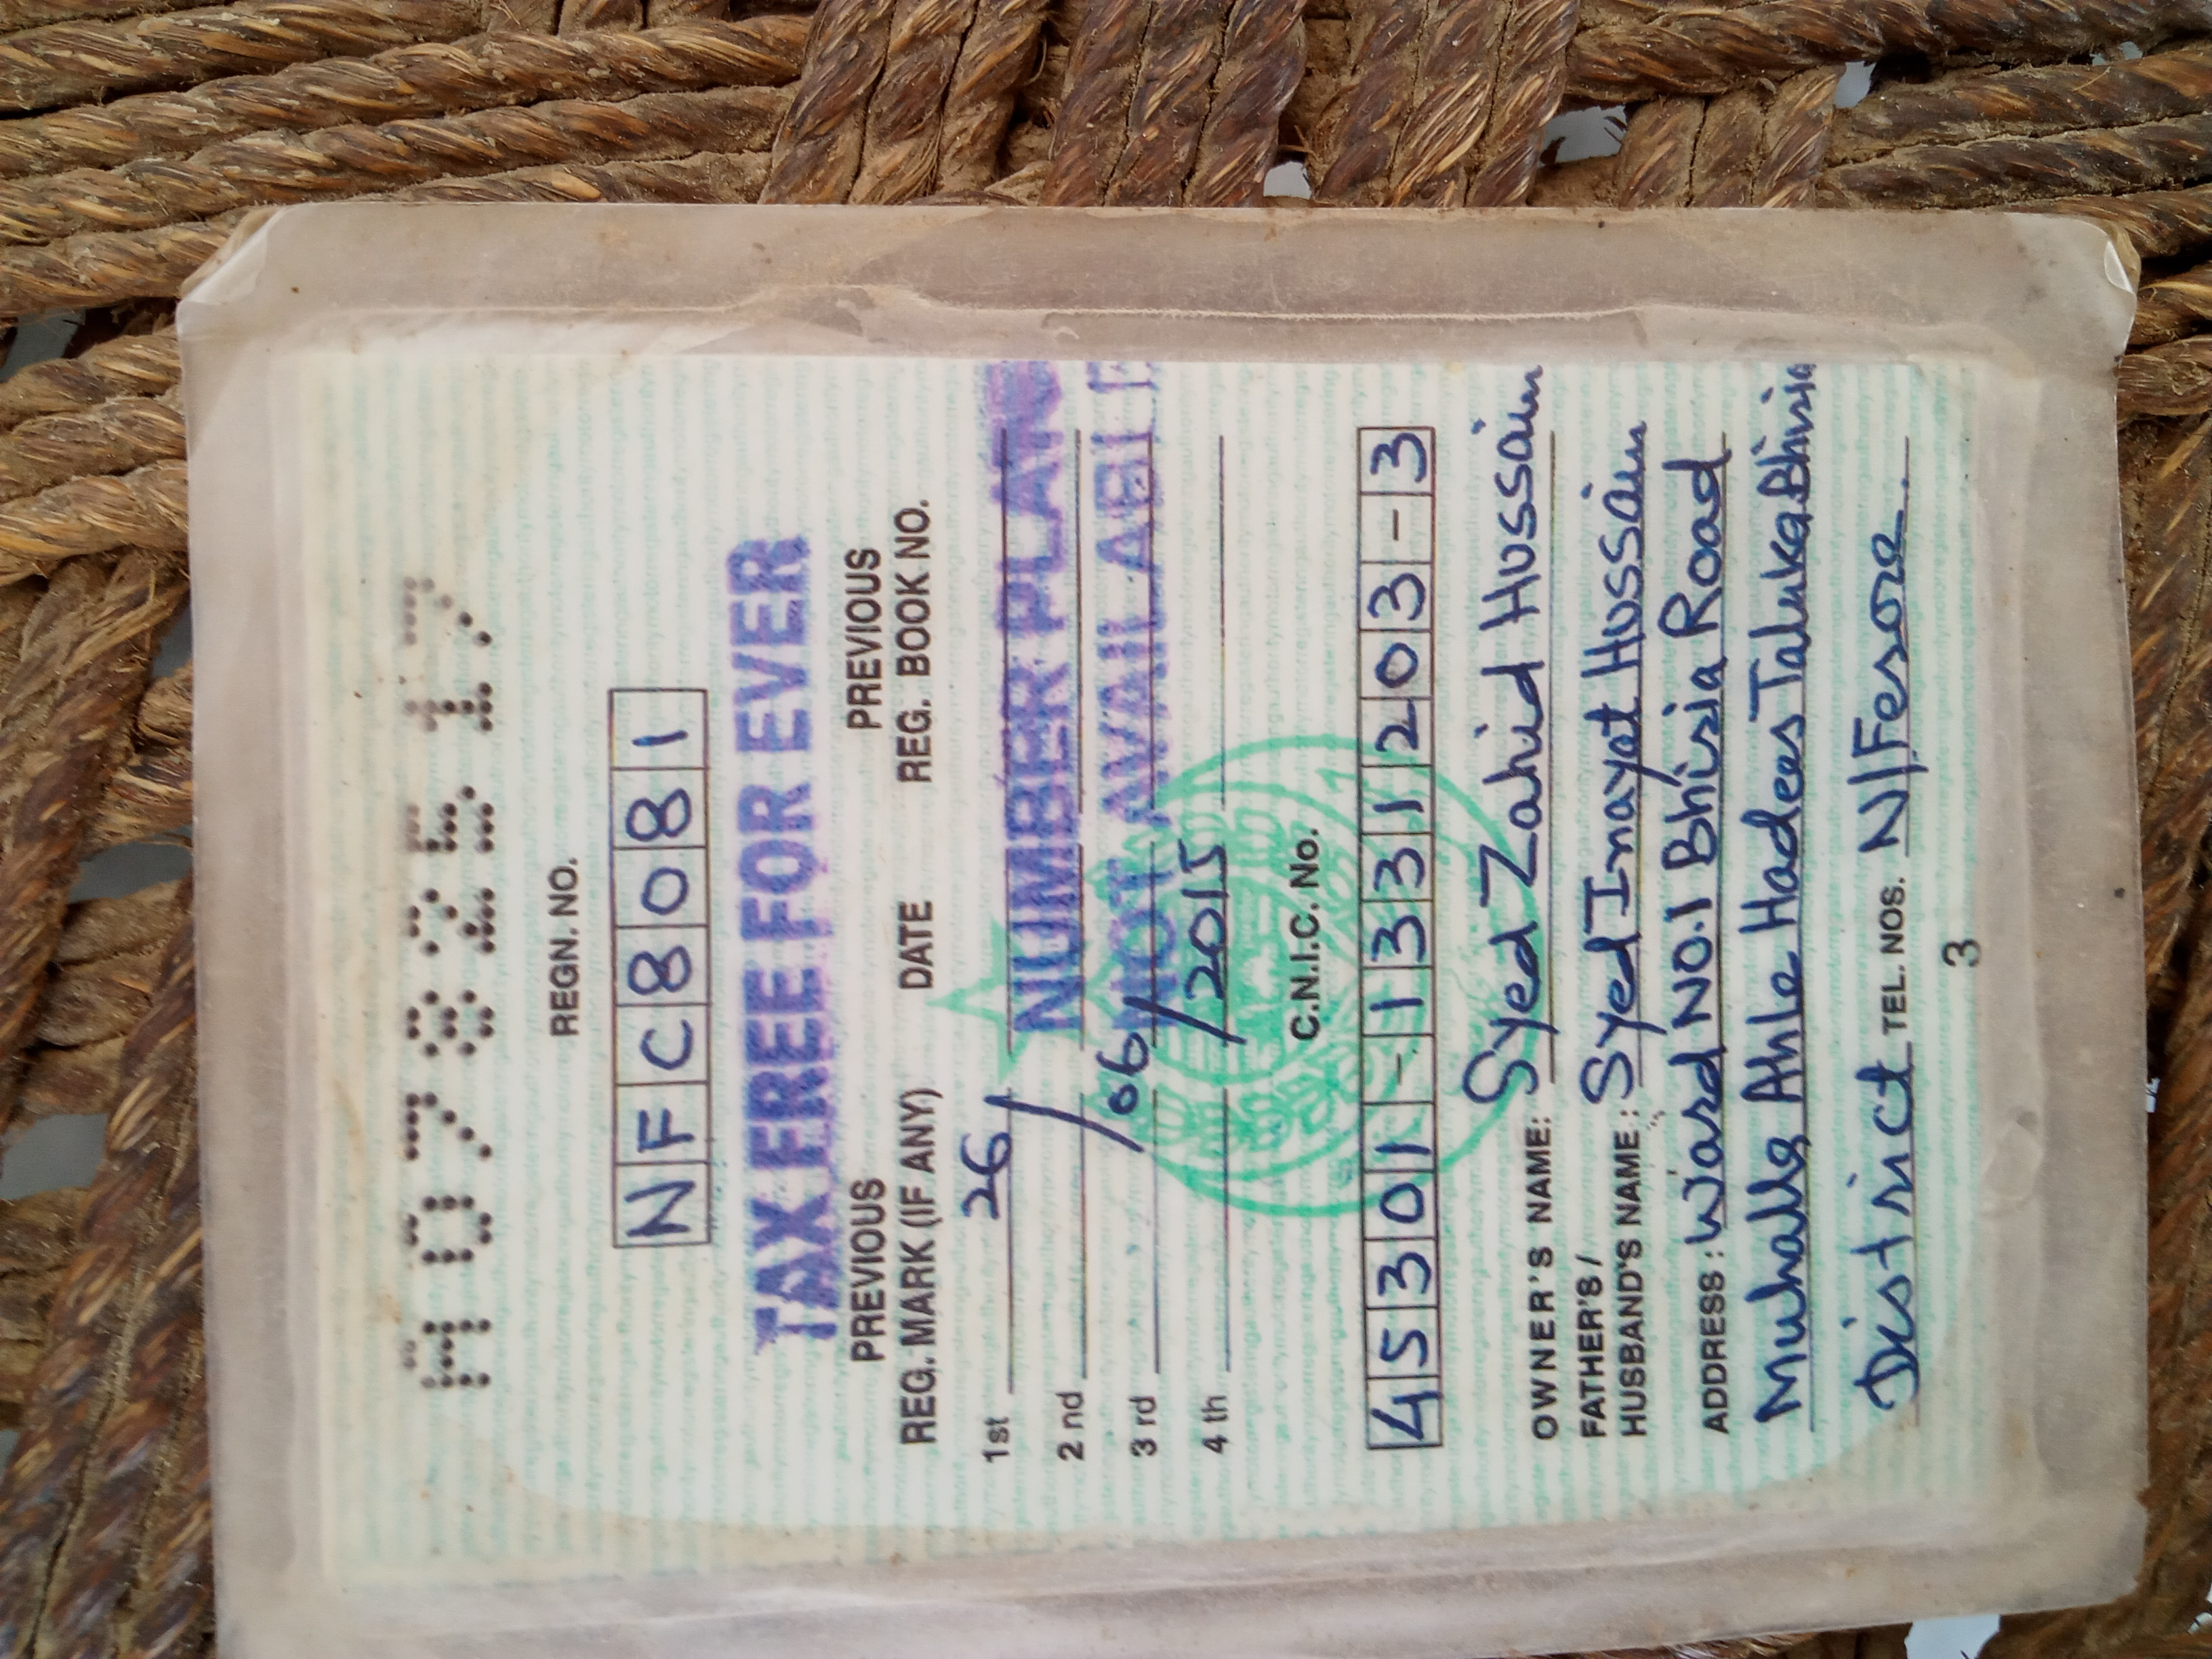 A0782517
REGN. NO.
NFC8081
TAX FREE FOR EVER
PREVIOUS PREVIOUS
REG. MARK (IF ANY) DATE REG. BOOK NO.
1st 26
2 nd / NUMBER PLATE
3 rd 06 NOT AVAILABL
4 th / 2015
C.N.I.C. No.
45301-1331203-3
OWNER'S NAME: Syed Zahid Hussain
FATHER'S /
HUSBAND'S NAME: Syed Inayat Hussain
ADDRESS: Ward NO.1 Bhiria Road
Muhalla Ahle Hadees Taluka Bhiria
District TEL. NOS. N/Feroze
3